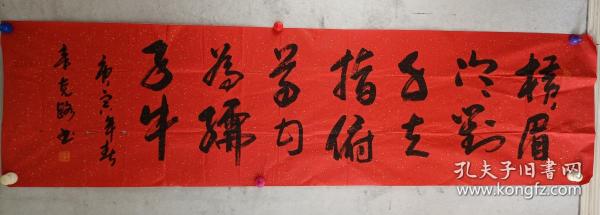 横眉
冷對
千夫
指俯
首甘
為孺
子牛
庚寅年春
李克路书
孔夫子旧书网
www.kongfz.com